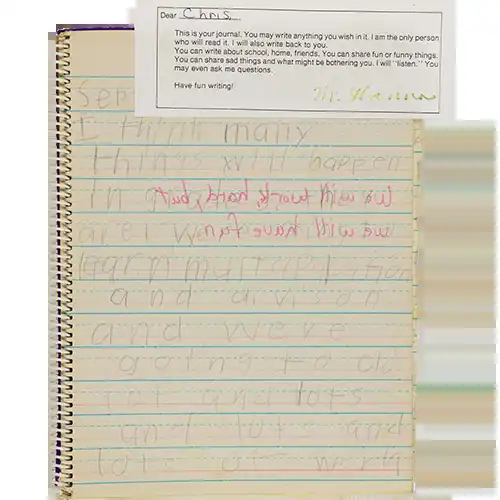 Dear Chris
This is your journal. You may write anything you wish in it. I am the only person
who will read it. I will also write back to you.
You can write about school, home, friends. You can share fun or funny things.
You can share sad things and what might be bothering you. I will "listen." You
may even ask me questions.
Have fun writing!
Mr.
Sep
I think many
things will happen
in
we will work hard, but
we will have fun
learn
and divison
and were
going to do
lot and lots
and lots and
lots of work